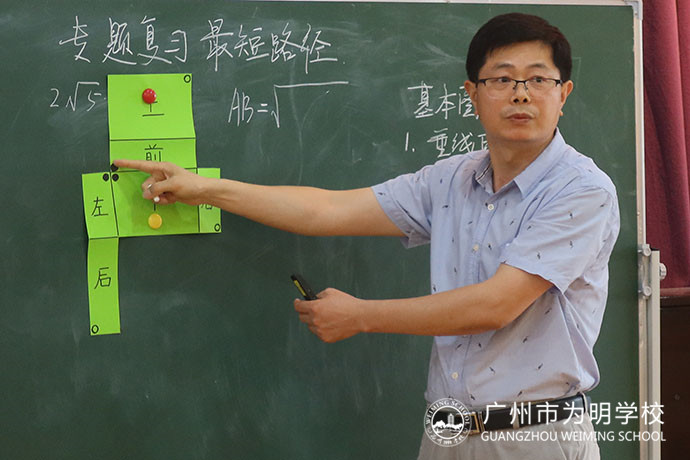 专题复习 最短路径
2√5
AB=√
基本图
1. 垂线段
上
前
左
右
后
广州市为明学校
GUANGZHOU WEIMING SCHOOL
WEIMING SCHOOL